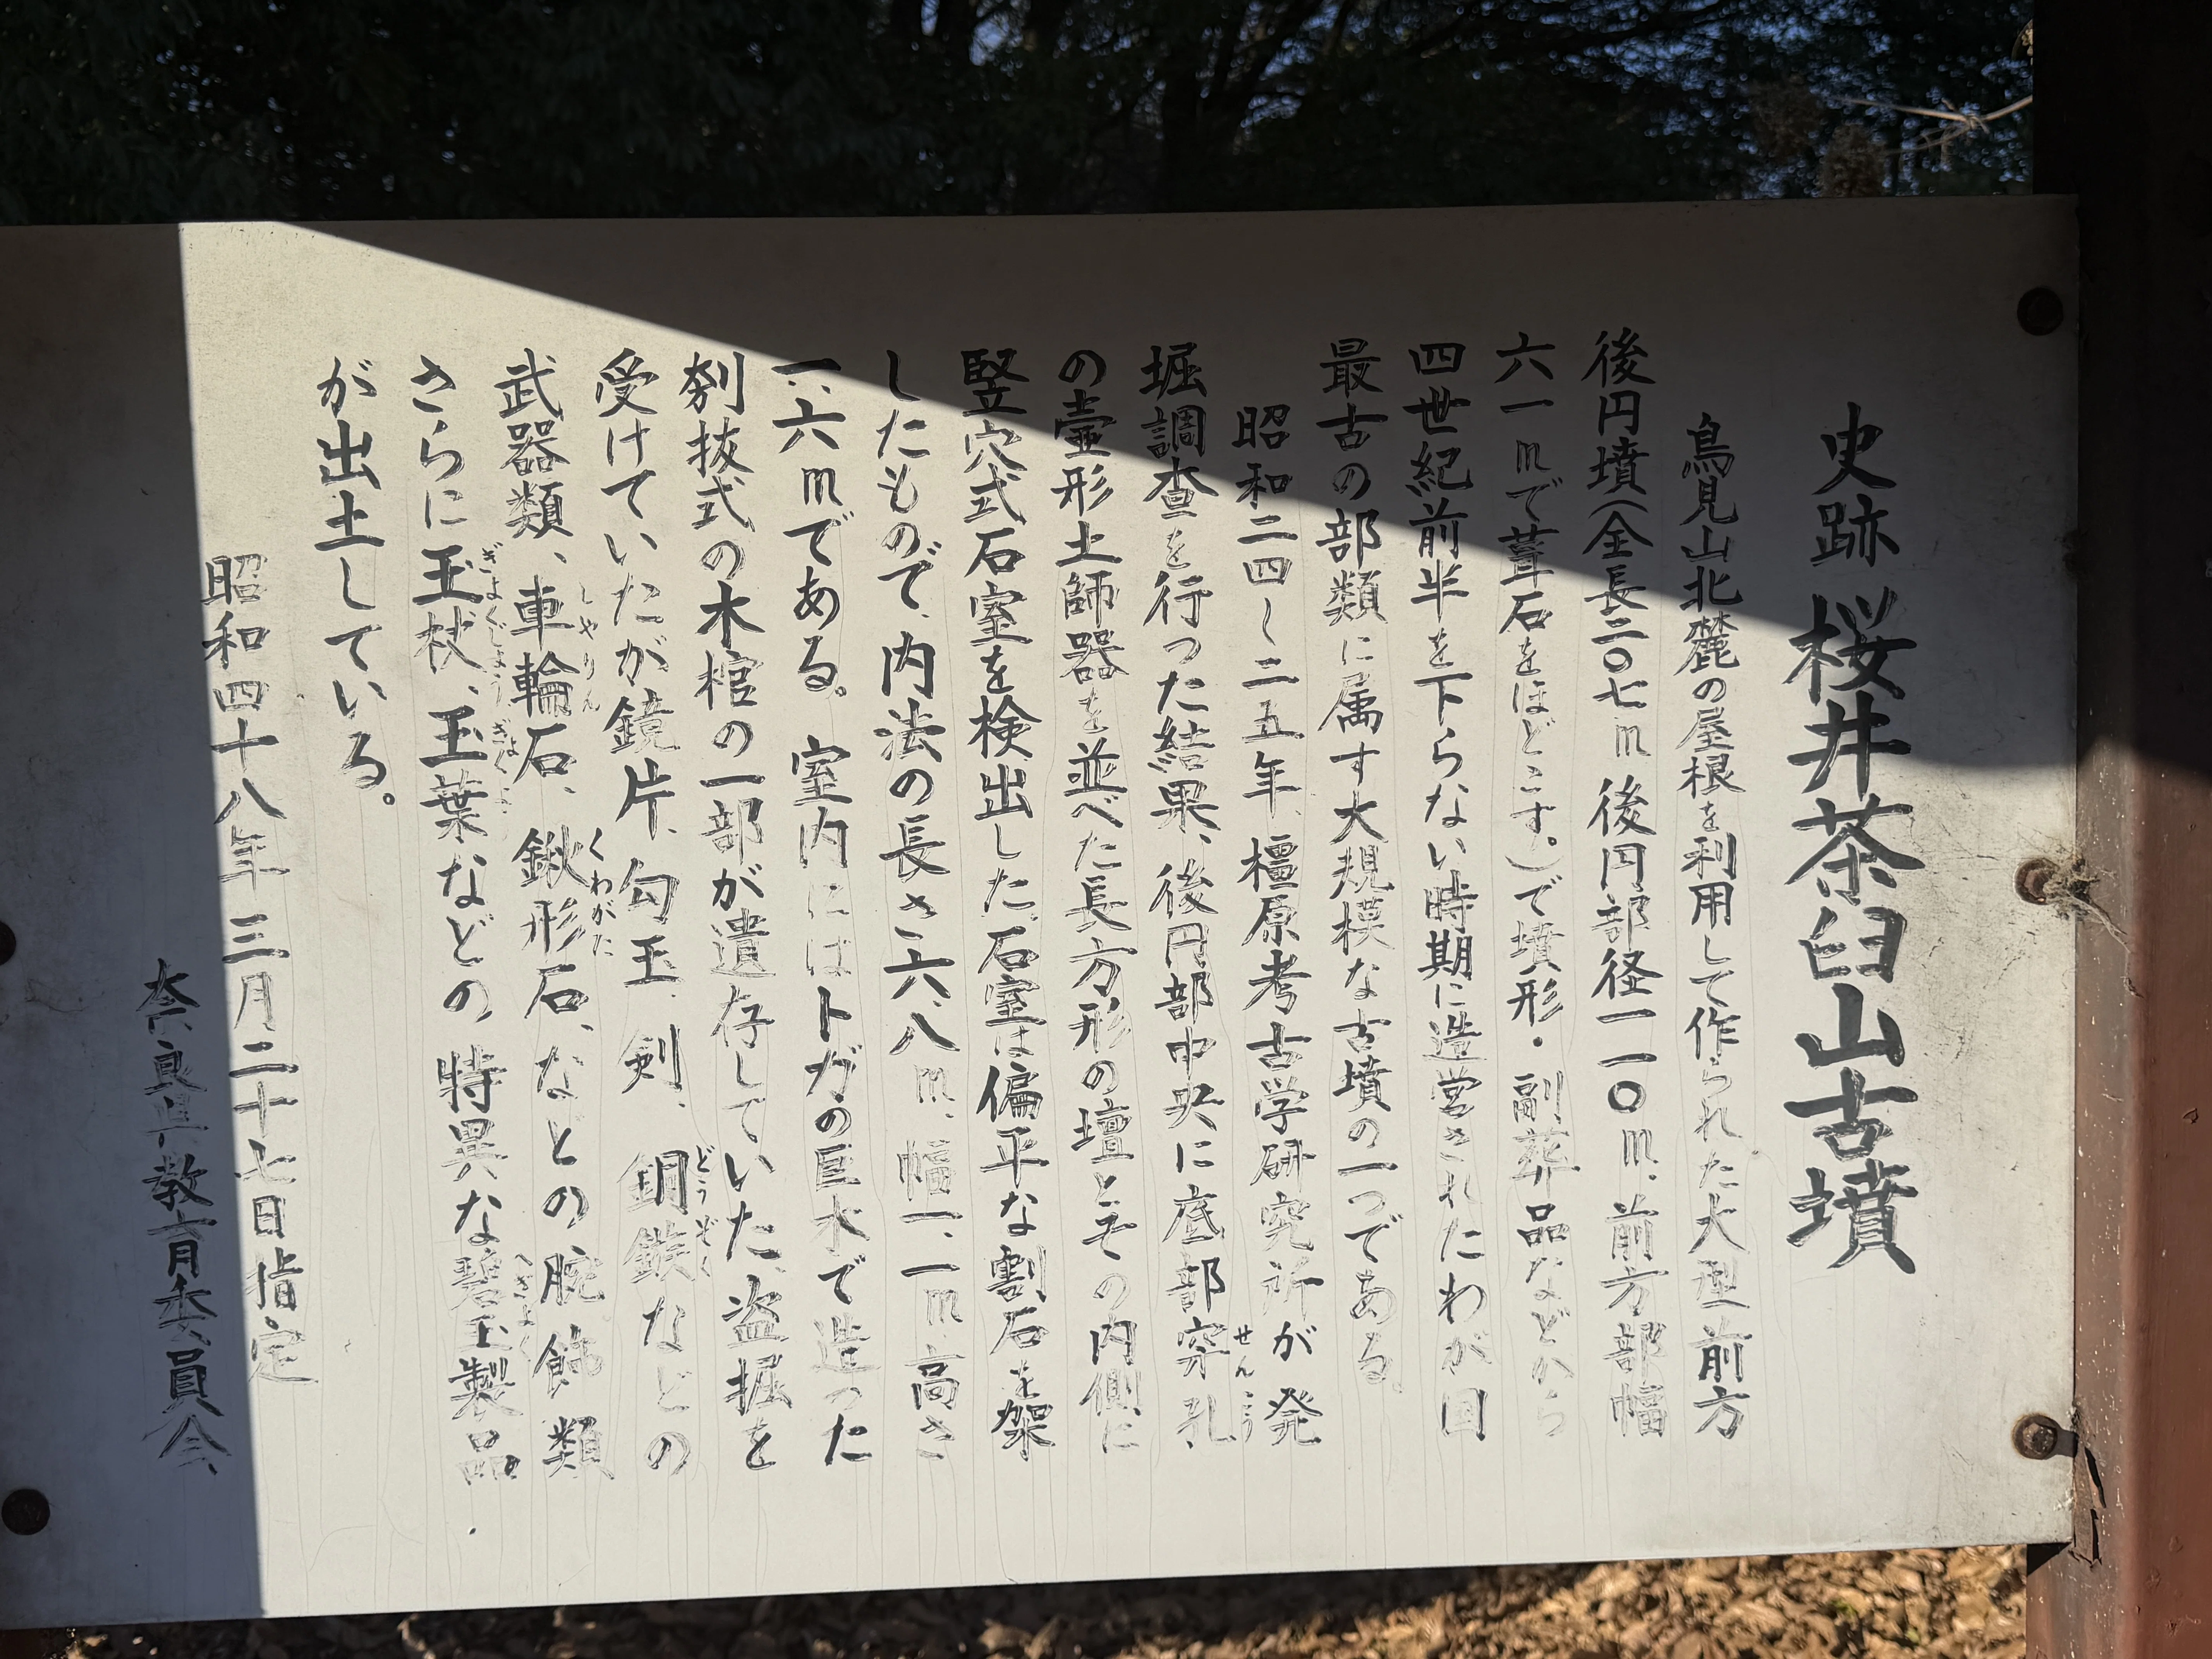 史跡 桜井茶臼山古墳
鳥見山北麓の屋根を利用して作られた大型前方
後円墳(全長二〇七m 後円部径一一〇m、前方部幅
六一mで葺石をほどこす。)で墳形・副葬品などから
四世紀前半を下らない時期に造営されたわが国
最古の部類に属す大規模な古墳の一つである。
昭和二四~二五年、檀原考古学研究所が発
堀調査を行った結果、後円部中央に底部穿孔
せんこう
の壷形土師器を並べた長方形の壇とその内側に
竪穴式石室を検出した。石室は偏平な割石を架
したもので、内法の長さ六、八m、幅一、一m、高さ
一、六mである。室内にはトガの巨木で造った
刳抜式の木棺の一部が遺存していた。盗掘を
受けていたが鏡片、勾玉、剣、銅鏃などの
どうぞく
武器類、車輪石、鍬形石、などの腕飾類
しゃりん くわがた
さらに玉杖、玉葉などの特異な碧玉製品
ぎょくじょう ぎょくよう へきぎょく
が出土している。
昭和四十八年三月二十七日指定
奈良県教育委員会